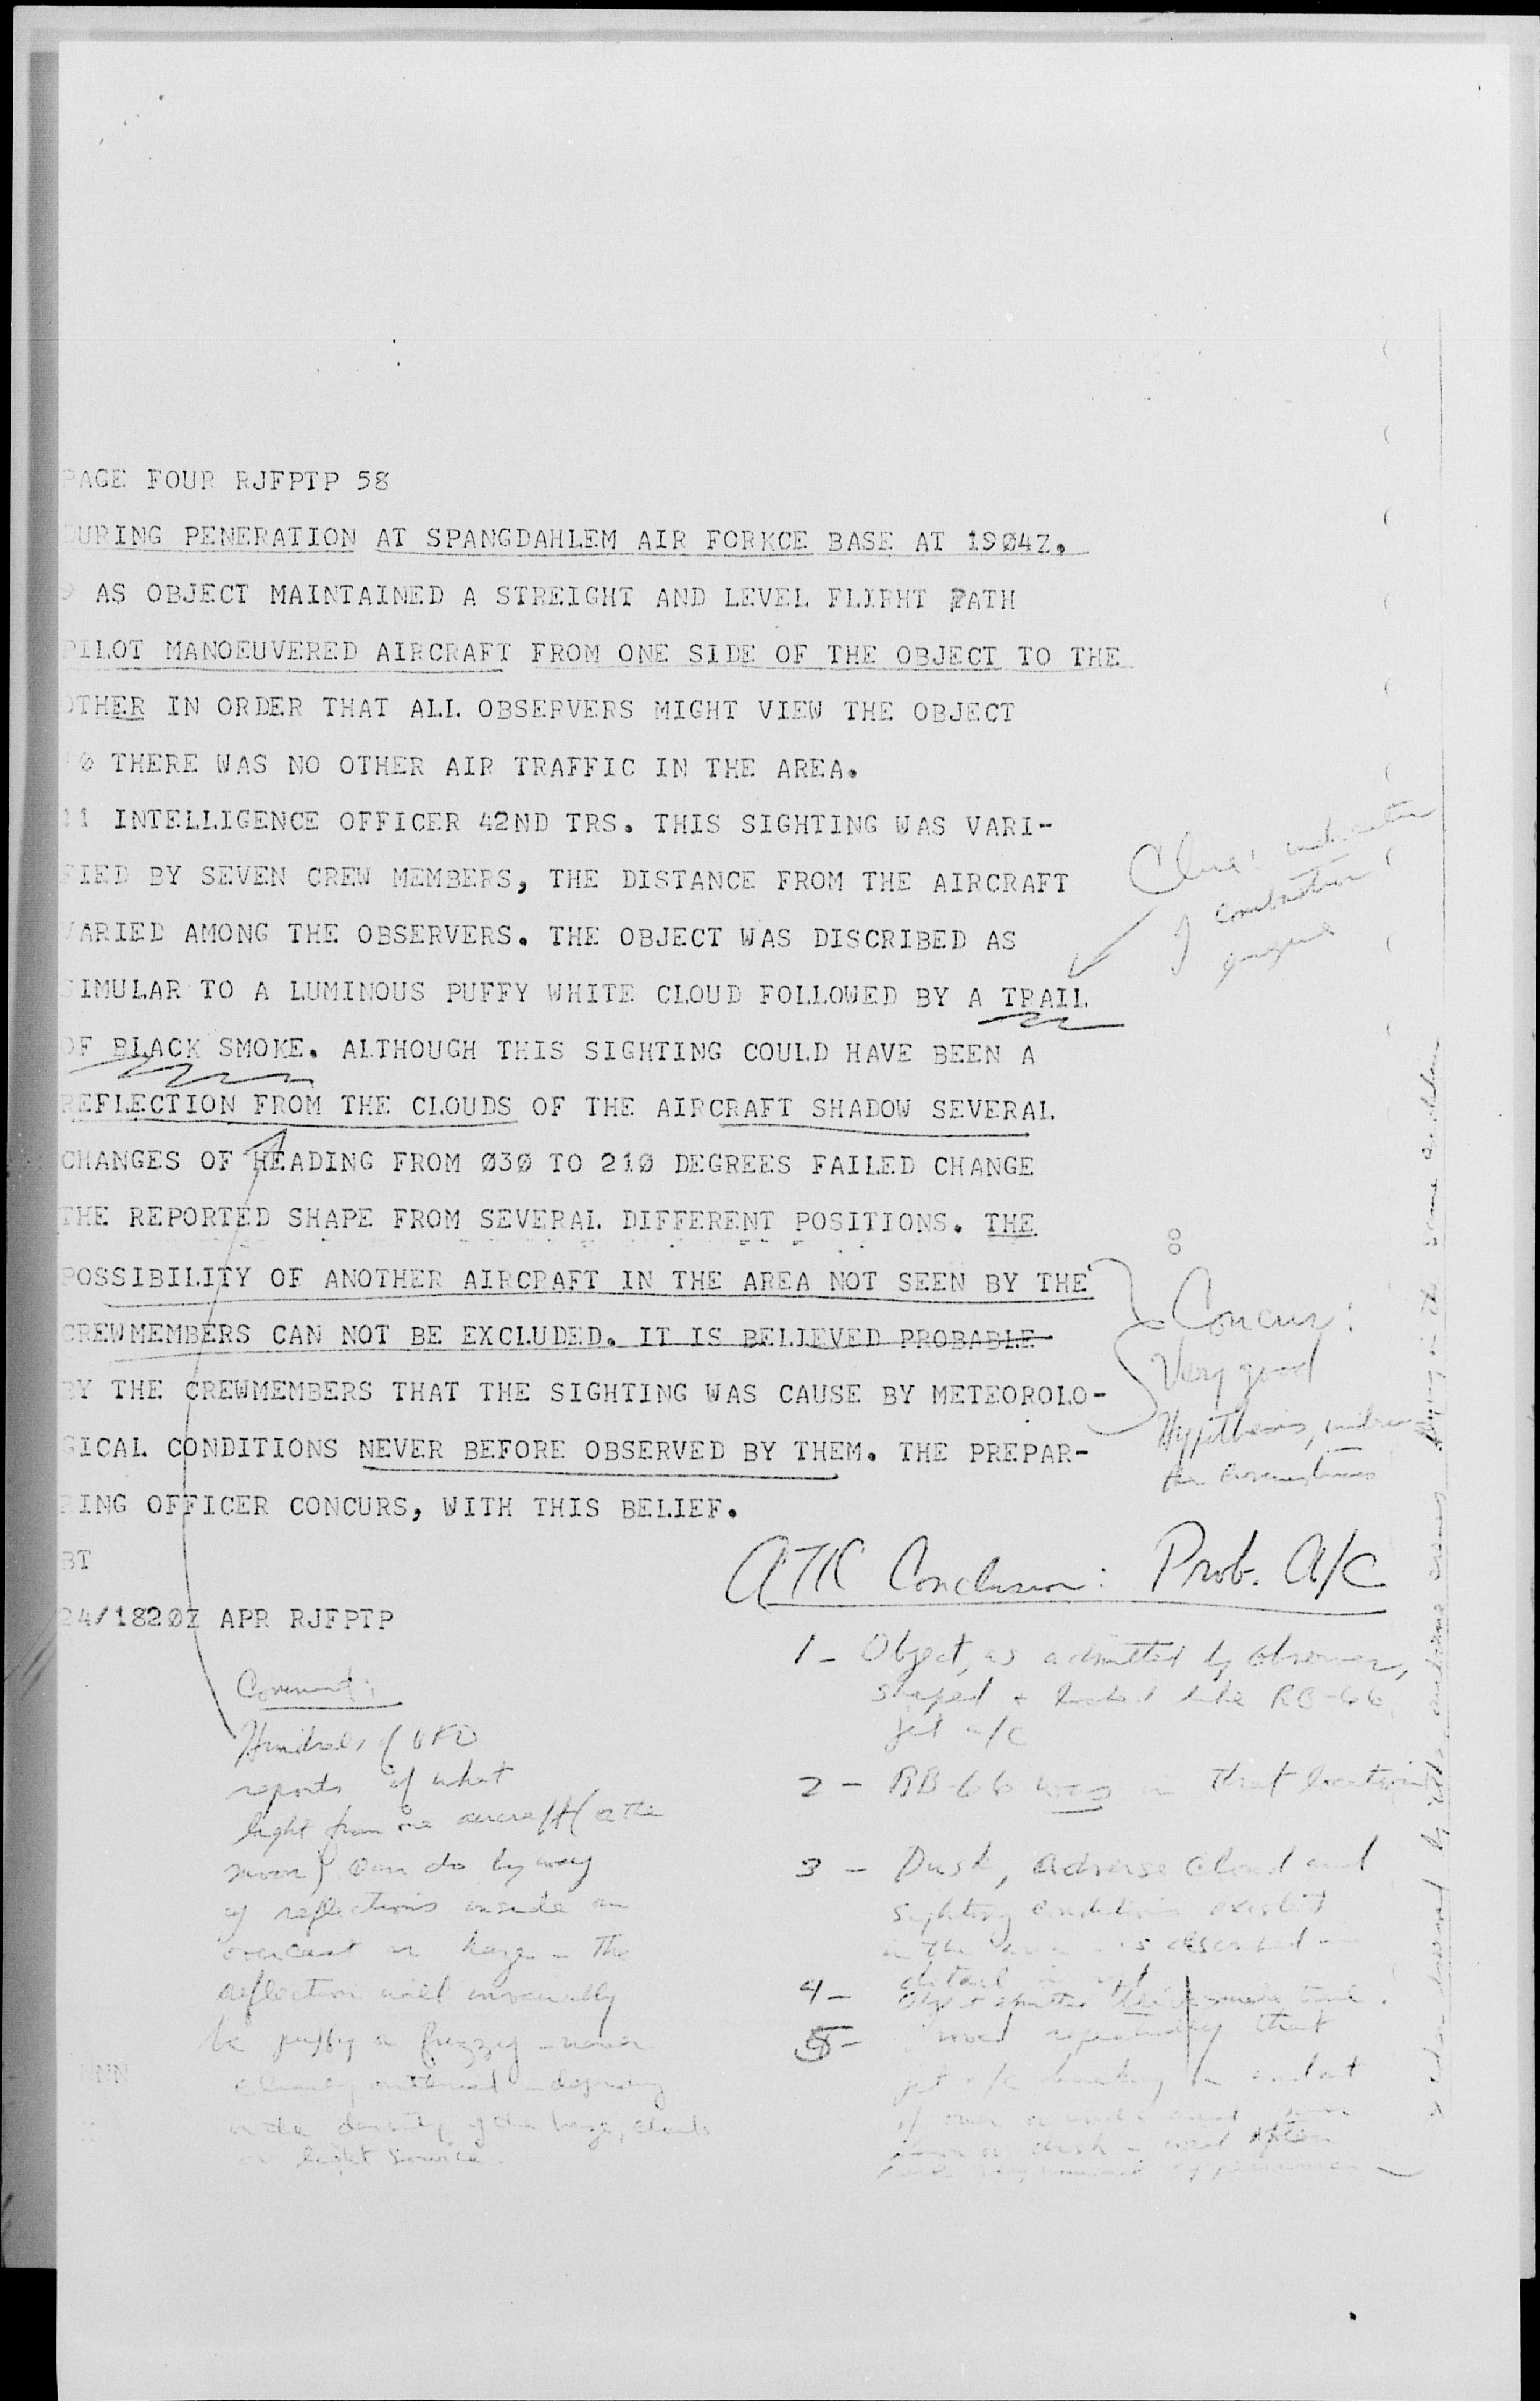 PAGE FOUR RJFPTP 58
DURING PENERATION AT SPANGDAHLEM AIR FORKCE BASE AT 19Ø4Z.
9 AS OBJECT MAINTAINED A STREIGHT AND LEVEL FLIRHT PATH
PILOT MANOEUVERED AIRCRAFT FROM ONE SIDE OF THE OBJECT TO THE
OTHER IN ORDER THAT ALL OBSERVERS MIGHT VIEW THE OBJECT
1Ø THERE WAS NO OTHER AIR TRAFFIC IN THE AREA.
11 INTELLIGENCE OFFICER 42ND TRS. THIS SIGHTING WAS VARI-
FIED BY SEVEN CREW MEMBERS, THE DISTANCE FROM THE AIRCRAFT
VARIED AMONG THE OBSERVERS. THE OBJECT WAS DISCRIBED AS
SIMULAR TO A LUMINOUS PUFFY WHITE CLOUD FOLLOWED BY A TRAIL
OF BLACK SMOKE. ALTHOUGH THIS SIGHTING COULD HAVE BEEN A
REFLECTION FROM THE CLOUDS OF THE AIRCRAFT SHADOW SEVERAL
CHANGES OF HEADING FROM Ø3Ø TO 21Ø DEGREES FAILED CHANGE
THE REPORTED SHAPE FROM SEVERAL DIFFERENT POSITIONS. THE
POSSIBILITY OF ANOTHER AIRCRAFT IN THE AREA NOT SEEN BY THE
CREWMEMBERS CAN NOT BE EXCLUDED. IT IS BELIEVED PROBABLE
BY THE CREWMEMBERS THAT THE SIGHTING WAS CAUSE BY METEOROLO-
GICAL CONDITIONS NEVER BEFORE OBSERVED BY THEM. THE PREPAR-
RING OFFICER CONCURS, WITH THIS BELIEF.
BT
24/182ØZ APR RJFPTP
Clue:
combustion
engine
Concur:
Very good
Hypothesis, under
the circumstances
ATIC Conclusion: Prob. A/C
1- Object, as admitted by observer,
shaped + looked like RB-66
jet a/c
2 - RB-66 was in that location
3 - Dusk, adverse cloud and
sighting conditions
in the area as described
detail
4- smoke trail.
5- that
jet a/c
often
Comment:
Hundreds of UFO
reports of what
light from one aircraft (or the
moon) can do by way
of reflections inside an
overcast or haze - The
reflection will invariably
be puffy or fuzzy - never
clearly outlined - depending
on the density of the haze, clouds
or light source.
NNN